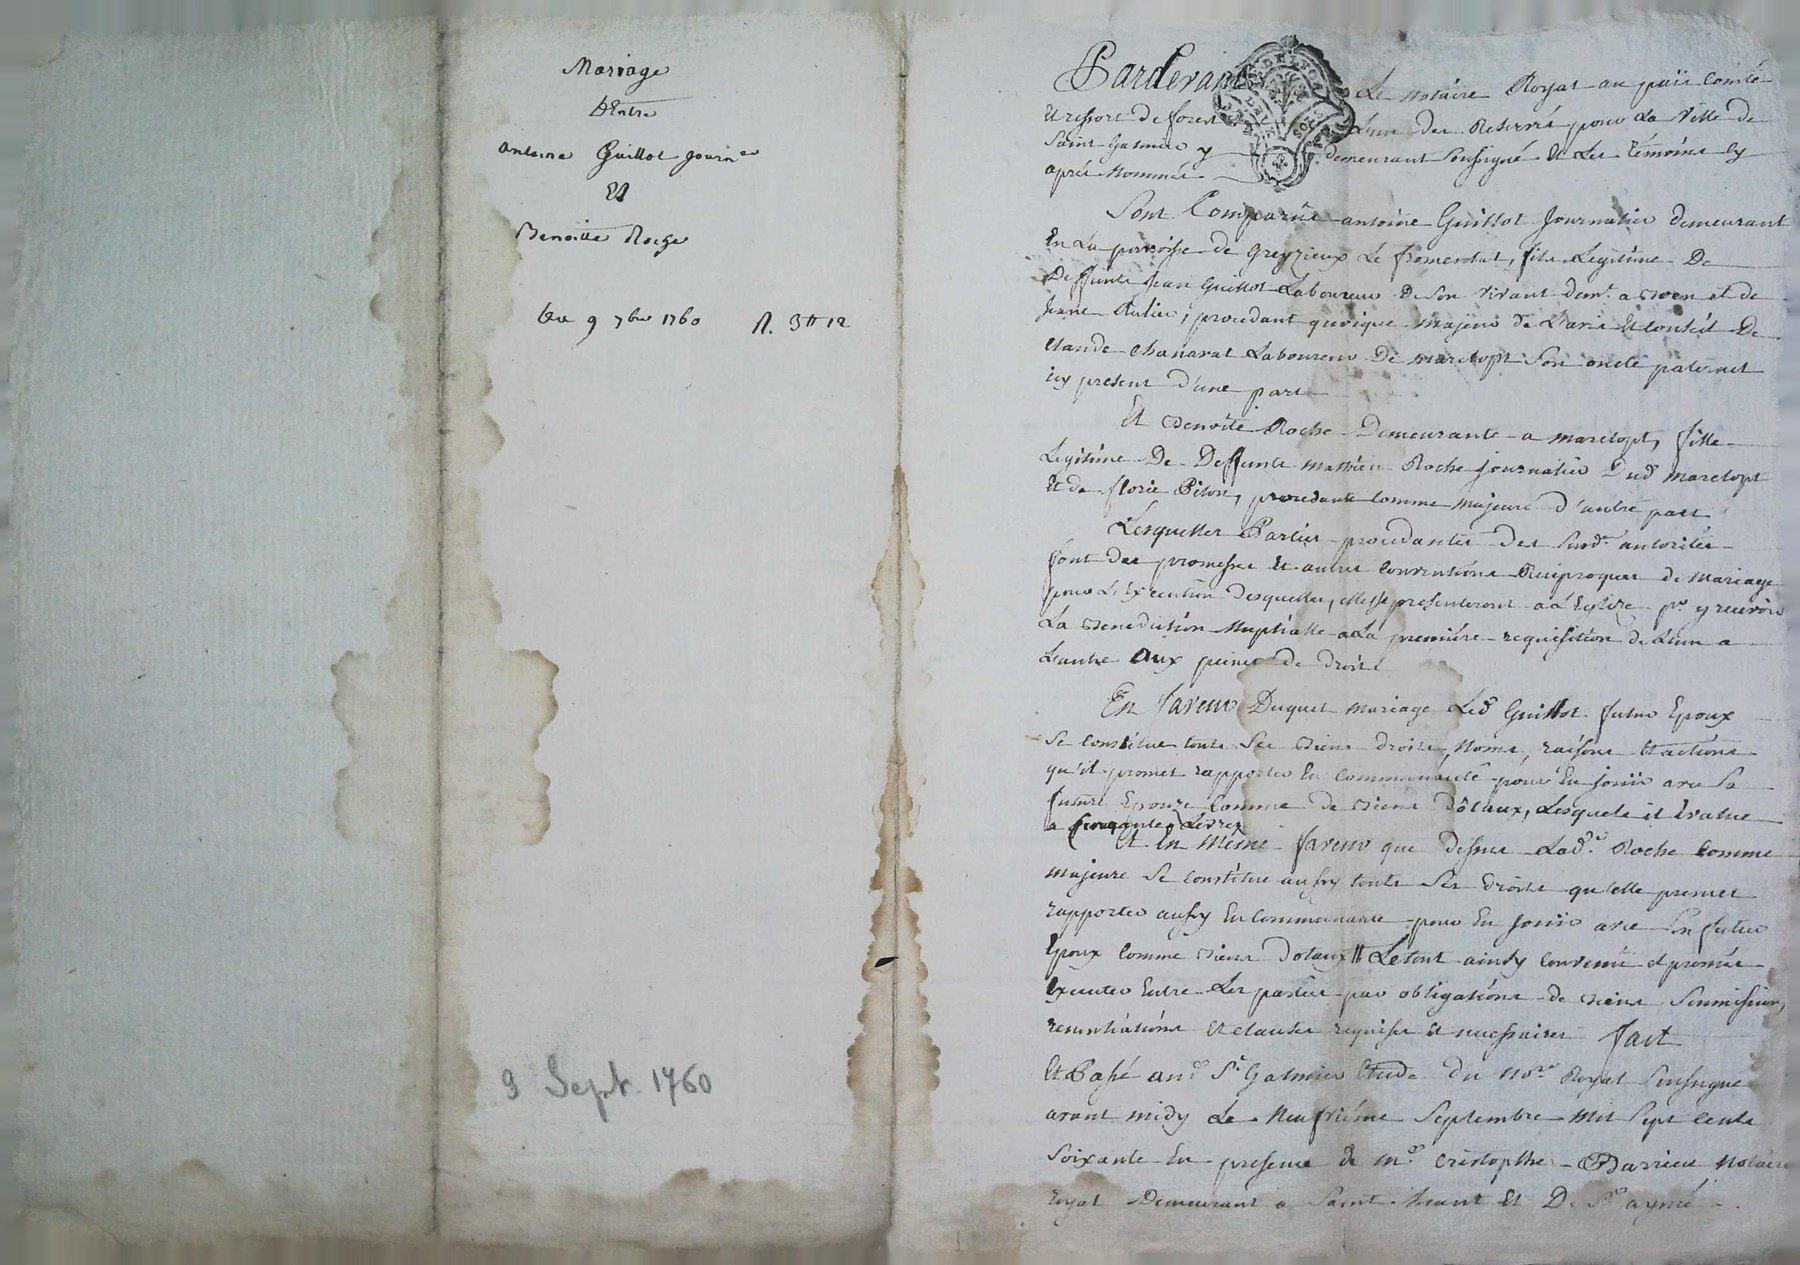 Mariage
Entre
Antoine Guillot Journer
Et
Benoitte Roche
Du 9 7bre 1760 R. 3tt 12
9 Sept. 1760
Pardevant Le Notaire Royal au païs Comté
Et ressort de forest L'un des Reservés pour La Ville de
Saint Galmier y demeurant soussigné Et Les témoins cy
après Nommés
Sont Comparûs antoine Guillot Journalier demeurant
En La parroisse de Grezieux Le fromental, fils Legitime De
Deffunts Jean Guillot Laboureur De son vivant demt. a et de
Jeanne procedant quoique majeur de L'avis Et Conseil De
Claude Chanavat Laboureur De marclopt Son oncle paternel
icy present d'une part
Et Benoite Roche Demeurante a marclopt, fille
Legitime De Deffunts Mathieu Roche journalier Dud marclopt
Et de florie Piton, procedante Comme majeure d'autre part
Lesquelles Parties procedantes Des susd. autorités
font des promesses Et autres Conventions Reciproques de Mariage
pour L'Execution desquelles, elles se presenteront a L'Eglize pr. y recevoir
La Benediction Nuptialle a La première requisition de L'un a
L'autre Aux peines de droit
En faveur Duquel mariage Led Guillot futur Epoux
Se Constitue tous Ses Biens droits, Noms, raisons Et actions
qu'il promet rapporter En Communauté pour En jouir avec Sa
future Epouze Comme de Biens Dôtaux, Lesquels il Evalue
a Livres
Et En Même faveur que Dessus Lad. Roche Comme
majeure Se Constitue aussy touts Ses Droits qu'elle promet
rapporter aussy En Communauté pour En Jouir avec Son futur
Epoux Comme Biens Dotaux Le tout ainsy Convenu et promis
Executer Entre Les parties par obligations de Biens Soumissions,
renontiations Et clauses requises Et necessaires fait
Et Passé aud St. Galmier Etude du Nore Royal Soussigné
avant midy Le Neufvième Septembre Mil Sept Cents
Soixante En presence de Me Cristopthe Barrieu Notaire
royal Demeurant a Saint heant Et De Sr aymé